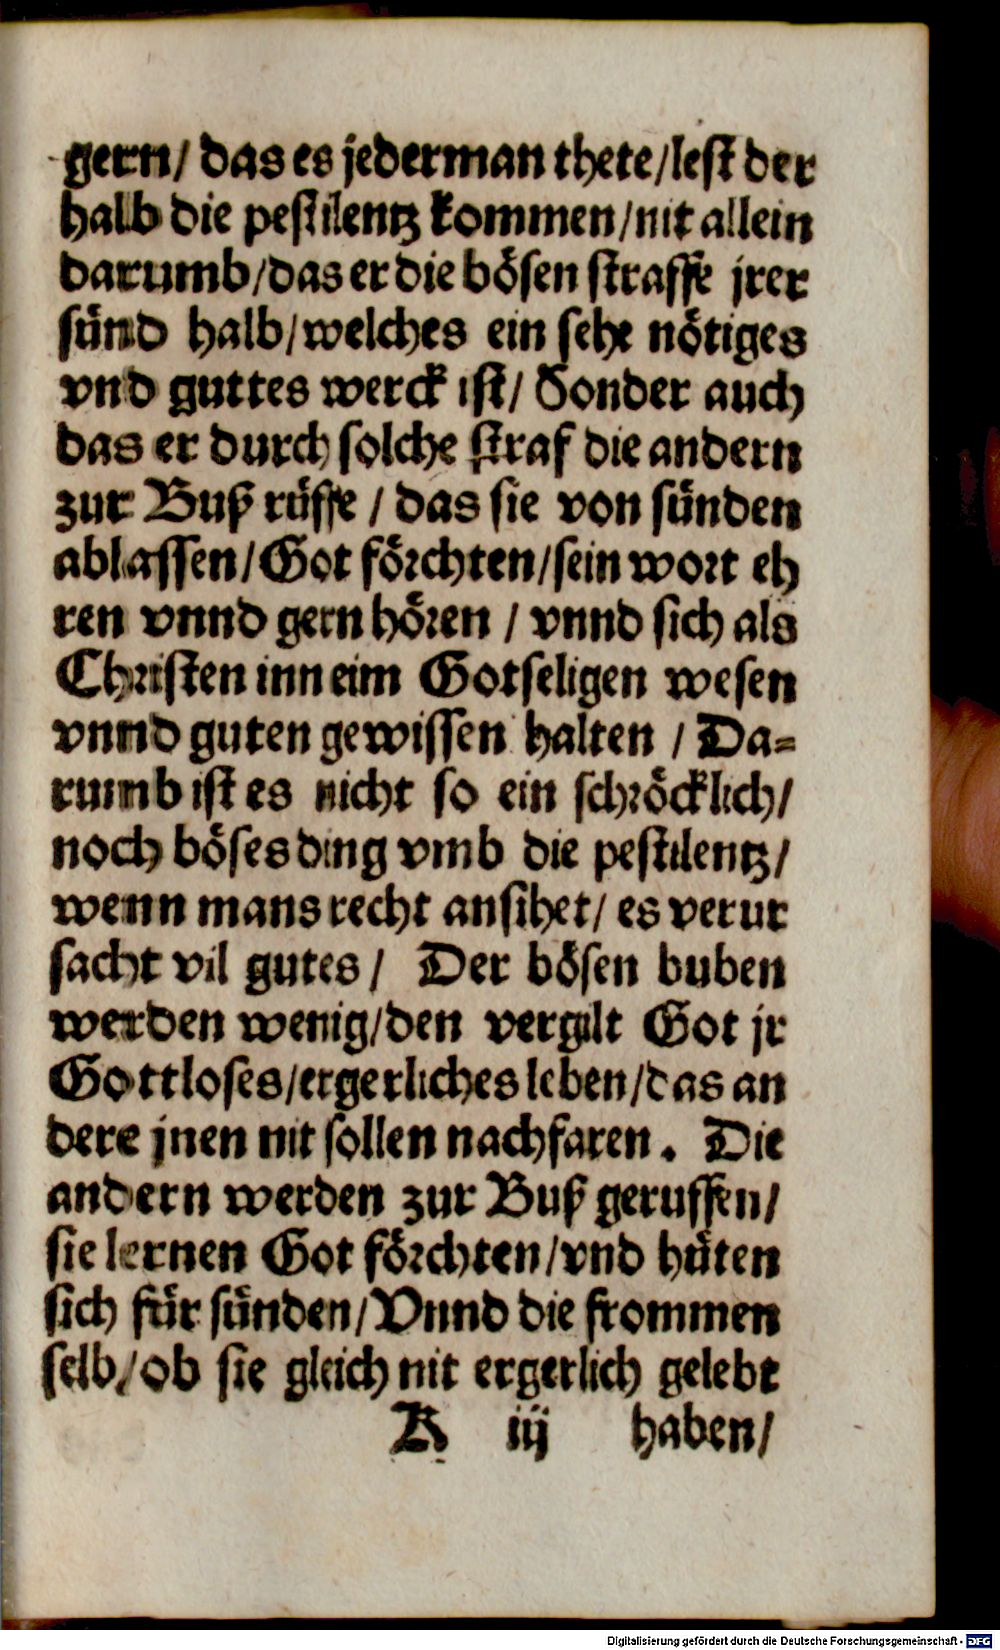 gern/ das es jederman thete/lest der
halb die pestilentz kommen/nit allein
darumb/das er die bösen straffe jrer
sünd halb/welches ein sehr nötiges
vnd guttes werck ist/ Sonder auch
das er durch solche straf die andern
zur Buß rüffe / das sie von sünden
ablassen/Got förchten/sein wort eh
ren vnnd gern hören / vnnd sich als
Christen inn eim Gotseligen wesen
vnnd guten gewissen halten / Da=
rumb ist es nicht so ein schröcklich/
noch böses ding vmb die pestilentz/
wenn mans recht ansihet/ es verur
sacht vil gutes/ Der bösen buben
werden wenig/den vergilt Got jr
Gottloses/ergerliches leben/das an
dere jnen nit sollen nachfaren. Die
andern werden zur Buß geruffen/
sie lernen Got förchten/vnd hüten
sich für sünden/Vnnd die frommen
selb/ob sie gleich nit ergerlich gelebt
K iij haben/
Digitalisierung gefördert durch die Deutsche Forschungsgemeinschaft - DFG